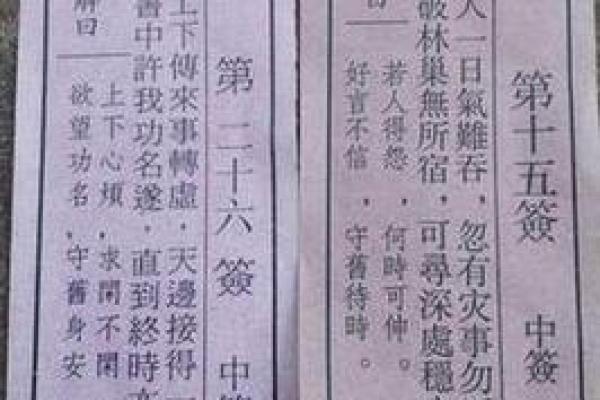 第十五簽 中簽
人一日氣難吞，忽有灾事勿
破林巢無所宿，可尋深處穩
曰
若人得怨，何時可仲。
好言不信，守舊待時。
第二十六簽 中
上下傳來事轉虛，天邊接得一
書中許我功名遂，直到終時
解曰
上下心煩，求閑不閑
欲望功名，守舊身安